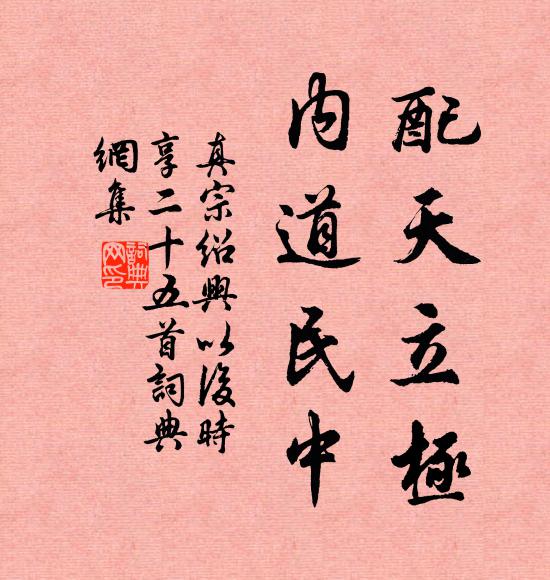 配天立極
内道民中
真宗紹興以後時
享二十五首詞典
網集
詞典網印